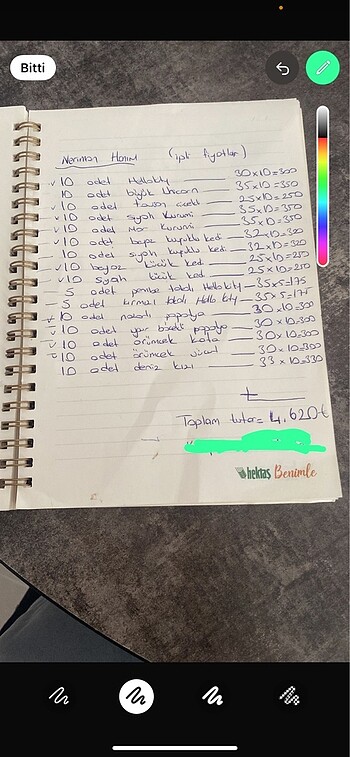 Bitti
Neriman Hanım (ipli fiyatlar)
10 adet Hellokity 30x10=300
10 adet büyük Unicorn 35x10=350
10 adet tavşan 25x10=250
10 adet siyah Kuromi 35x10=350
10 adet Mor Kuromi 35x10=350
10 adet beyaz kuyruklu kedi 32x10=320
10 adet siyah kuyruklu kedi 32x10=320
10 beyaz küçük kedi 25x10=250
10 siyah küçük kedi 25x10=250
5 adet pembe tokalı Hello kity 35x5=175
5 adet kırmızı tokalı Hello kity 35x5=175
10 adet papatya 30x10=300
10 adet papatya 30x10=300
10 adet örümcek kafa 30x10=300
10 adet örümcek 30x10=300
10 adet deniz kızı 33x10=330
Toplam tutar= 4.620 t
hektaş Benimle